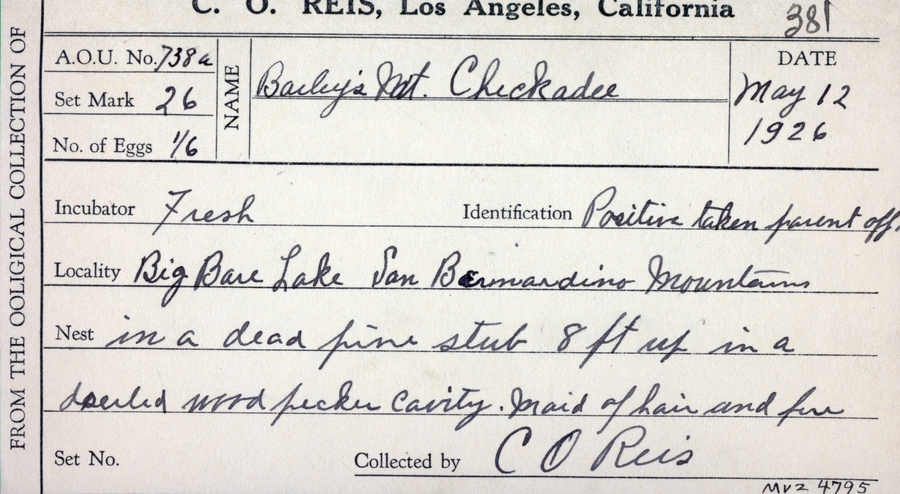 C. O. REIS, Los Angeles, California
381
FROM THE OOLIGICAL COLLECTION OF
A.O.U. No. 738a
Set Mark 26
No. of Eggs 1/6
NAME
Bailey's Mt. Checkadee
DATE
May 12
1926
Incubator Fresh Identification Positive taken parent off.
Locality Big Bare Lake San Bernardino Mountains
Nest in a dead pine stub 8 ft up in a
wood pecker cavity. Maid of hair and fure
Set No. Collected by C O Reis
MVZ 4795